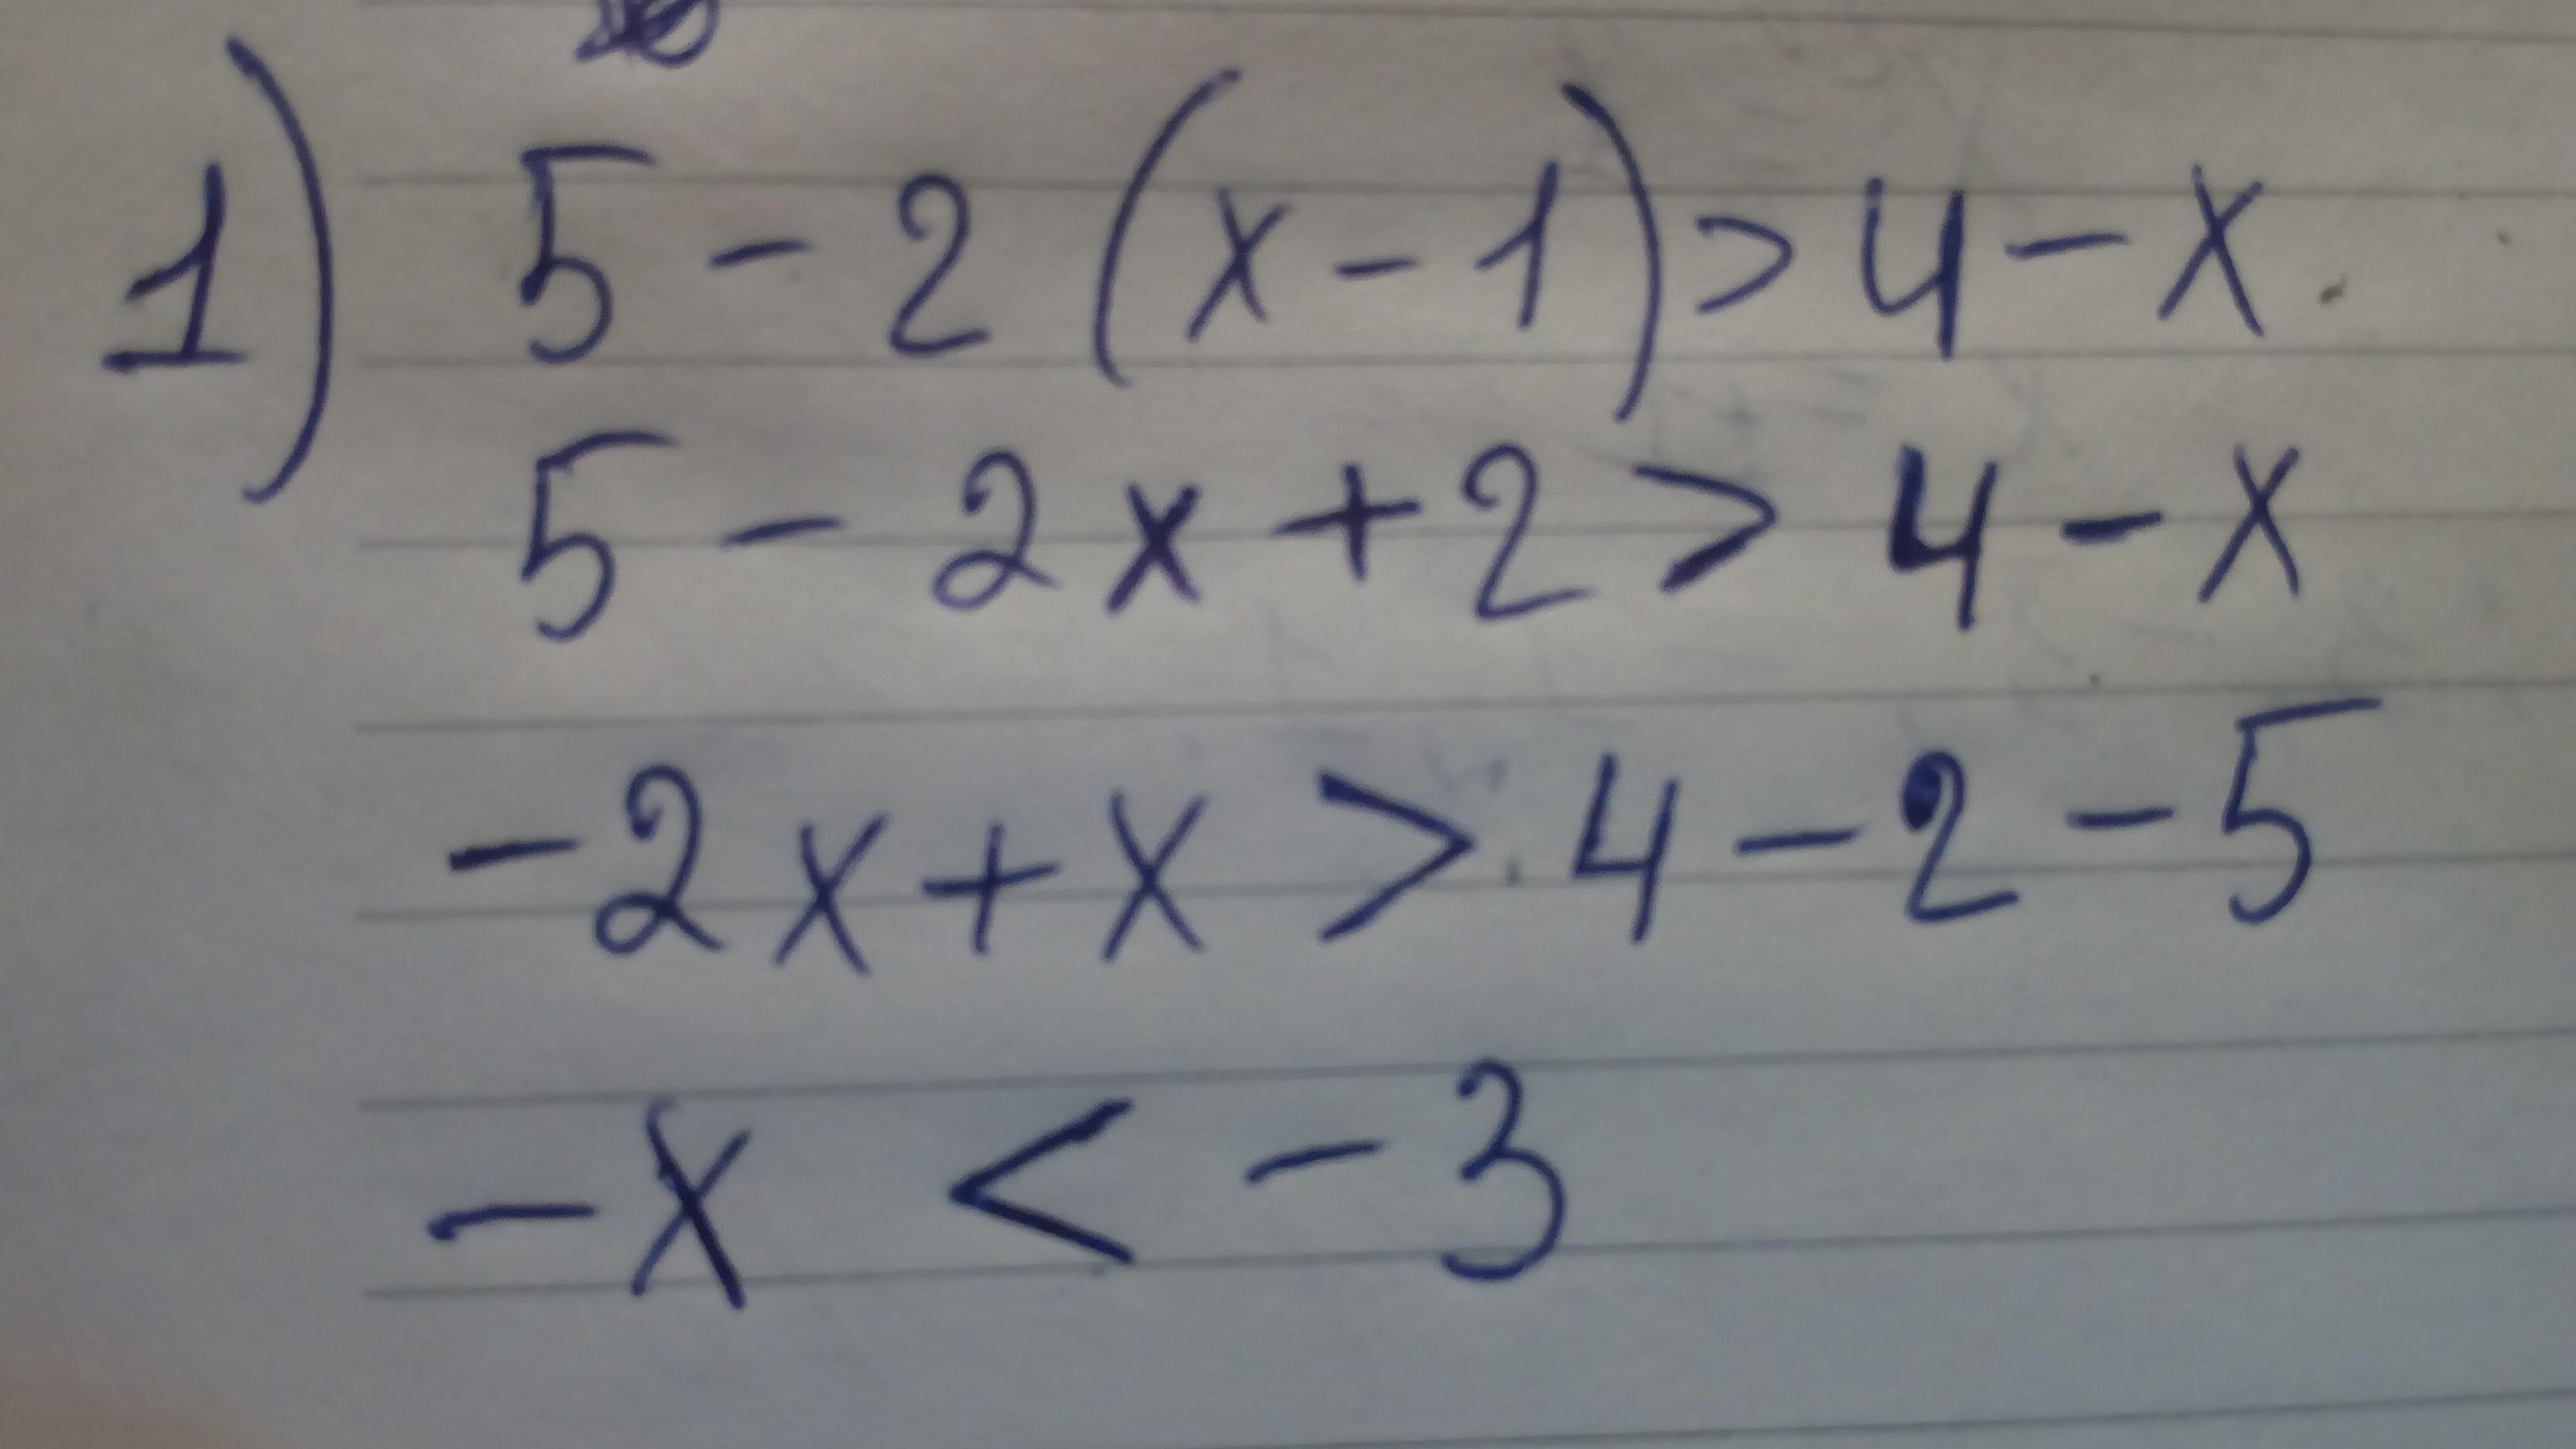 1) 5 - 2 (x - 1) > 4 - x
5 - 2x + 2 > 4 - x
-2x + x > 4 - 2 - 5
-x < -3